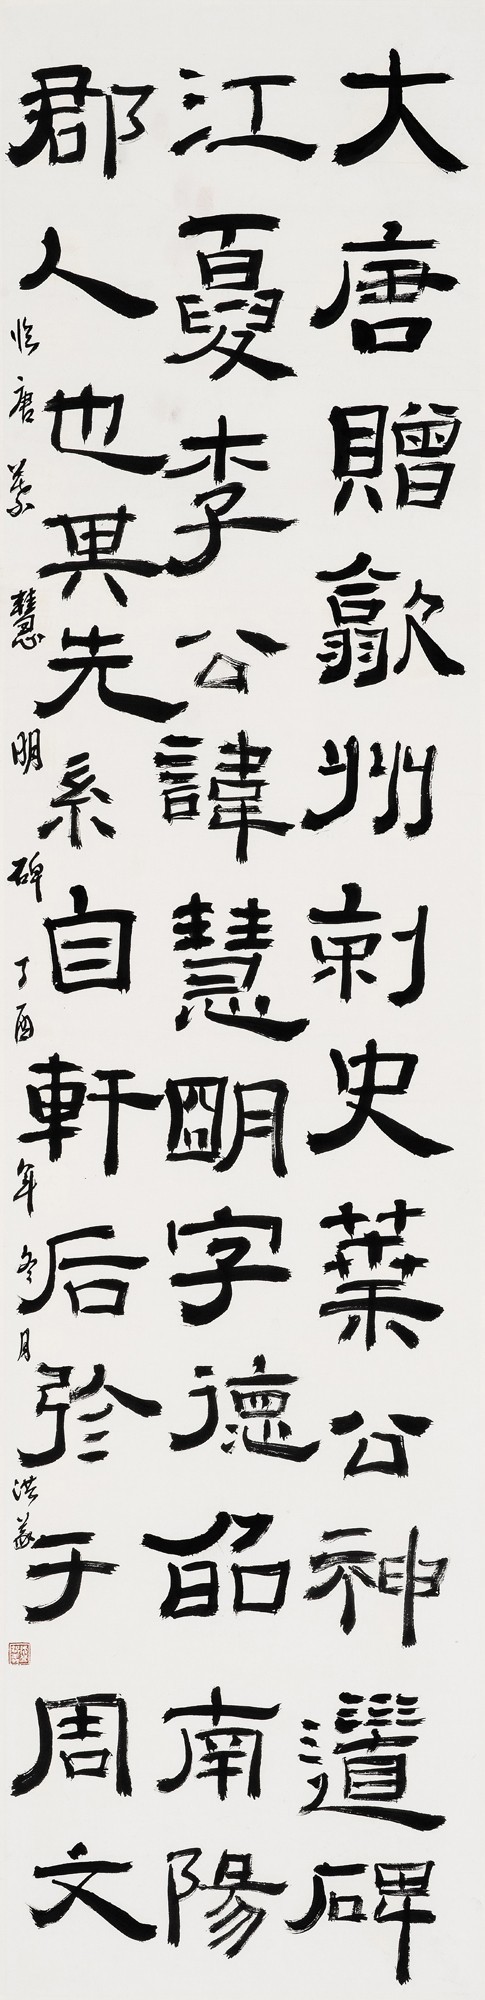 大唐贈歙州刺史葉公神道碑
江夏李公諱慧明字德昭南陽
郡人也其先系自軒后弥于周文
临唐葉慧明碑丁酉年冬月洪